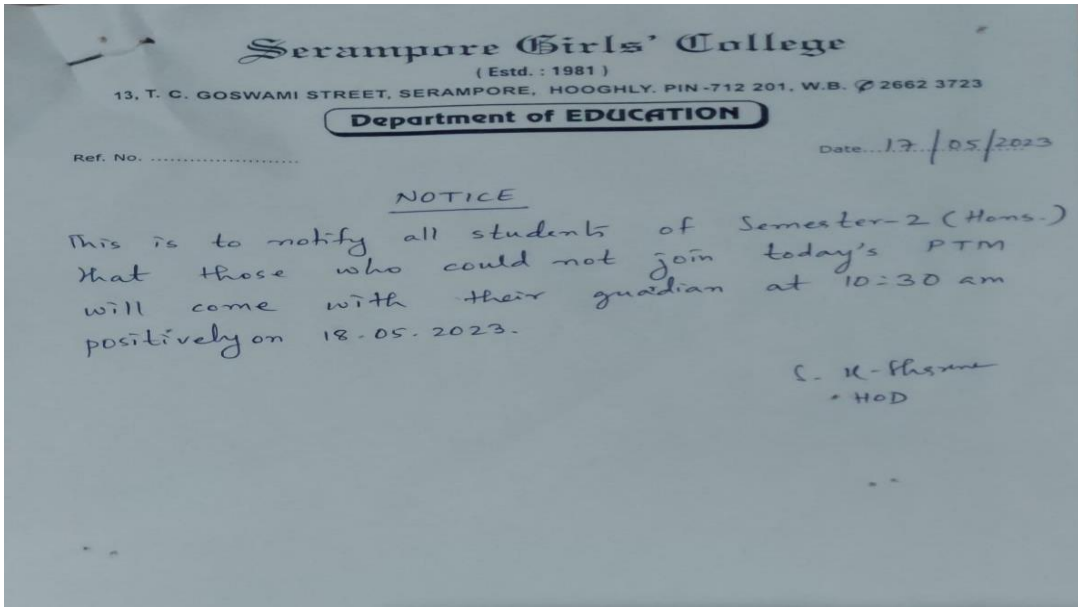 Serampore Girls' College
( Estd. : 1981 )
13, T. C. GOSWAMI STREET, SERAMPORE, HOOGHLY. PIN -712 201, W.B. ✆ 2662 3723
Department of EDUCATION
Ref. No. ........................ Date...17/05/2023
NOTICE
This is to notify all students of Semester-2 (Hons.)
that those who could not join today's PTM
will come with their guadian at 10:30 am
positively on 18.05.2023.
S. K-
HOD